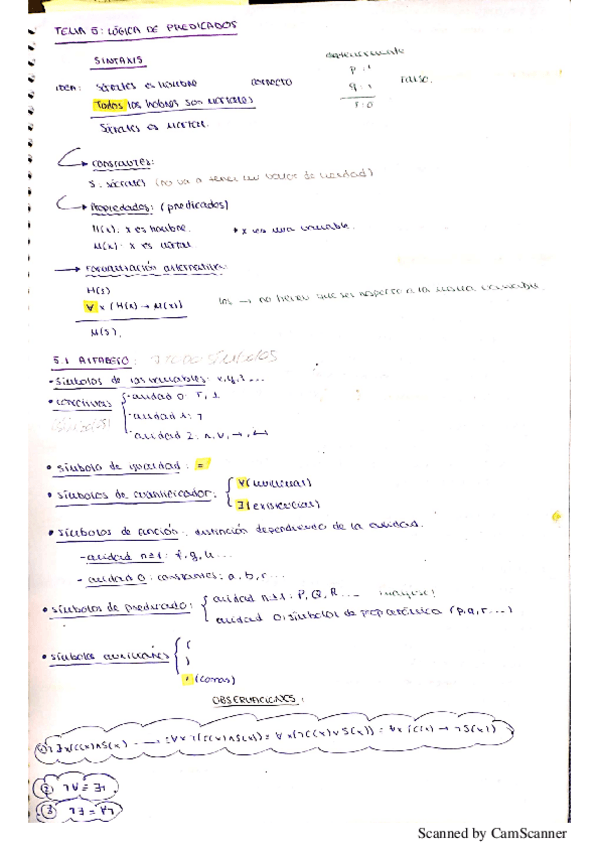 TEMA 5: LÓGICA DE PREDICADOS
SINTAXIS
IDEA: Sócrates es hombre correcto
Todos los hobres son mortales
Sócrates es mortal.
p: 1
q: 1 falso.
r: 0
constantes:
S: Sócrates (no va a tener un valor de verdad)
Propiedades: (predicados)
H(x): x es hombre. * x es una variable.
M(x): x es mortal
Formalización alternativa:
H(s)
∀x (H(x) → M(x))
M(s).
5.1 ALFABETO: TIPO SÍMBOLOS
• Símbolos de las variables: x, y, z ...
• conectivas aridad 0: ⊤, ⊥
aridad 1: ¬
aridad 2: ∧, ∨, →, ↔
• símbolo de igualdad: =
• símbolos de cuantificador: ∀ (universal)
∃ (existencial)
• símbolos de función: distinción dependiendo de la aridad.
- aridad n≥1: f, g, h ...
- aridad 0: constantes: a, b, c ...
• símbolos de predicado: aridad n≥1: P, Q, R ...
aridad 0: símbolos de (p, q, r ...)
• símbolos auxiliares (
)
, (comas)
OBSERVACIONES:
① ¬∃x(C(x)∧S(x)) ≡ ∀x¬(C(x)∧S(x)) ≡ ∀x(¬C(x)∨¬S(x)) ≡ ∀x(C(x) → ¬S(x))
② ¬∀ ≡ ∃¬
③ ¬∃ ≡ ∀¬
Scanned by CamScanner